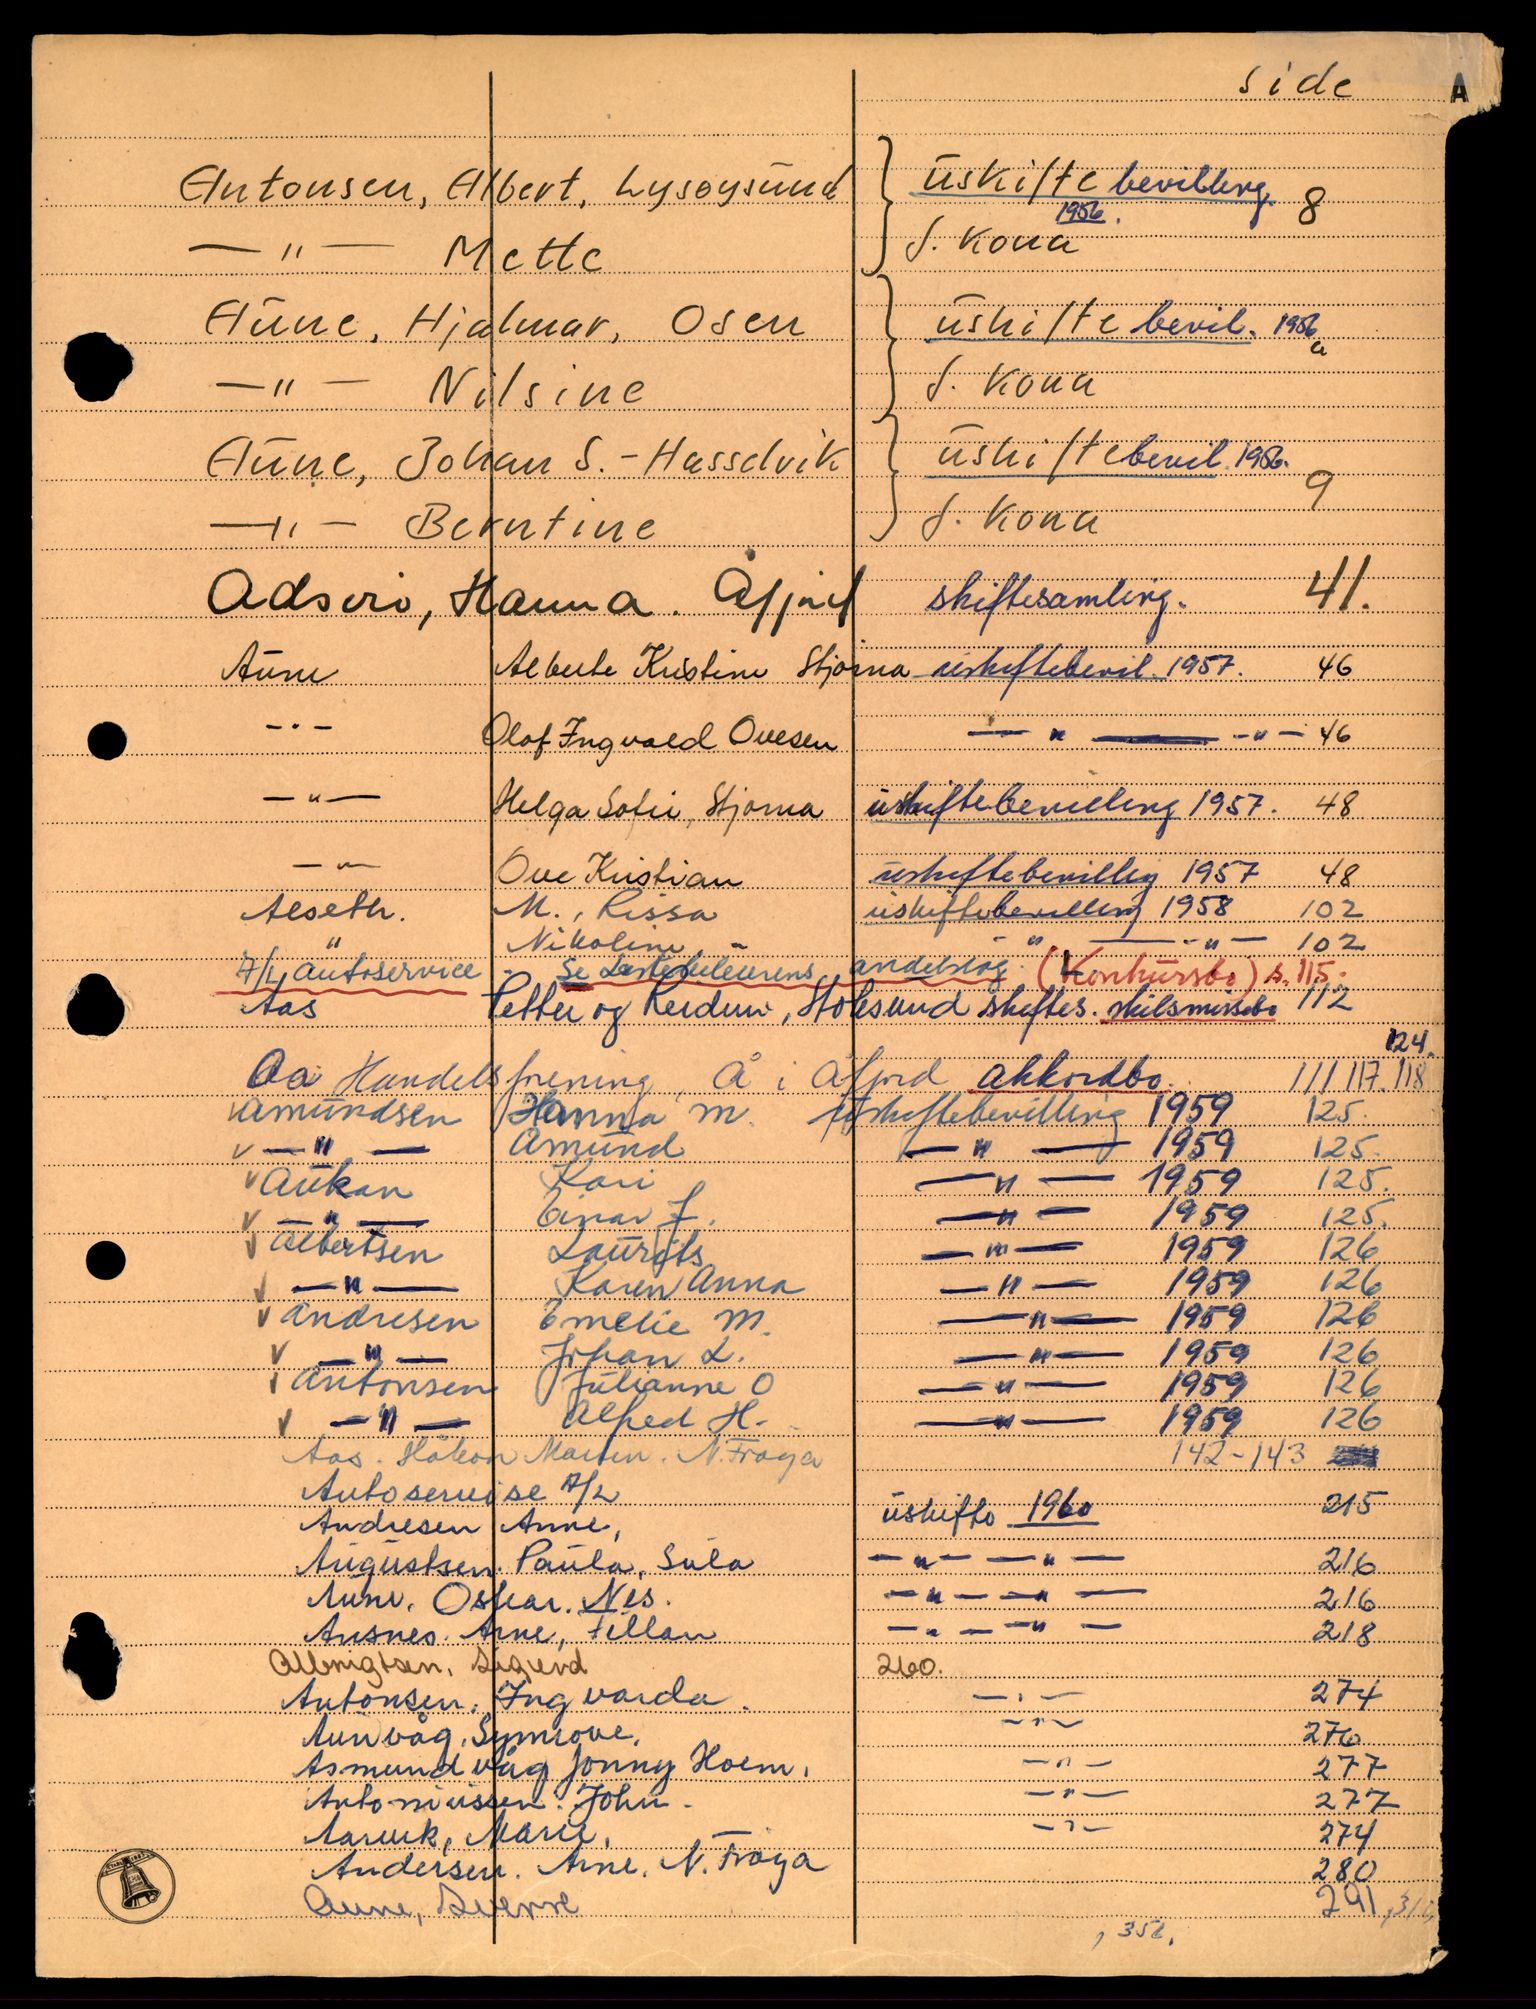 side A
Antonsen, Albert, Lysøysund } uskiftebevilling 8
1956.
— " — Mette f. Kona
Aune, Hjalmar, Osen } uskifte bevil. 1956
— " — Nilsine f. Kona
Aune, Johan S. - Hasselvik } uskiftebevil 1956. 9
— " — Berntine f. Kona
Adserø, Hanna. Åfjord skiftesamling. 41.
Aune Alberte Kristine Stjørna uskiftebevil. 1957. 46
- " - Olof Ingvald Ovesen — " — - " - 46
— " — Helga Sofie, Stjørna uskiftebevilling 1957. 48
— " — Ove Kristian uskiftebevillig 1957 48
Alseth. M., Rissa uskiftebevilling 1958 102
" Nikoline, - " — - " — 102
A/L autoservice - Se andelslag (Konkursbo) s. 115.
Aas Petter og Reidun, Stoksund skiftes. skilsmissebo 112
124.
Aa Handelsforening, Å i Åfjord akkordbo. 111 117. 118
Amundsen Hanna M. uskiftebevilling 1959 125.
— " — Amund — " — 1959 125.
Aukan Kari — " — 1959 125.
— " — Einar J. — " — 1959 125.
Albertsen Laurits — " — 1959 126
— " — Karen Anna — " — 1959 126
Andresen Emelie M. — " — 1959 126
— " — Johan L. — " — 1959 126
Antonsen Julianne O — " — 1959 126
— " — Alfred H. — " — 1959 126
Aas. Håkon Martin. N. Frøya 142-143
Autoservise A/L
Andresen Anne, uskifto 1960 215
Augustsen. Paula, Sula — " — — " — 216
Aune. Oskar. Nes. — " — — " — 216
Ausnes. Arne, Fillan — " — — " — 218
Albrigtsen, Sigurd 260.
Antonsen. Ingvarda. — " — 274
Aunvåg, Synnøve. — " — 276
Asmundvåg Jonny Hoem. — " — 277
Antoniussen. John. — " — 277
Aarvik, Marie. — " — 274
Andersen. Arne. N. Frøya 280
Aune, Sverre 291
, 352.